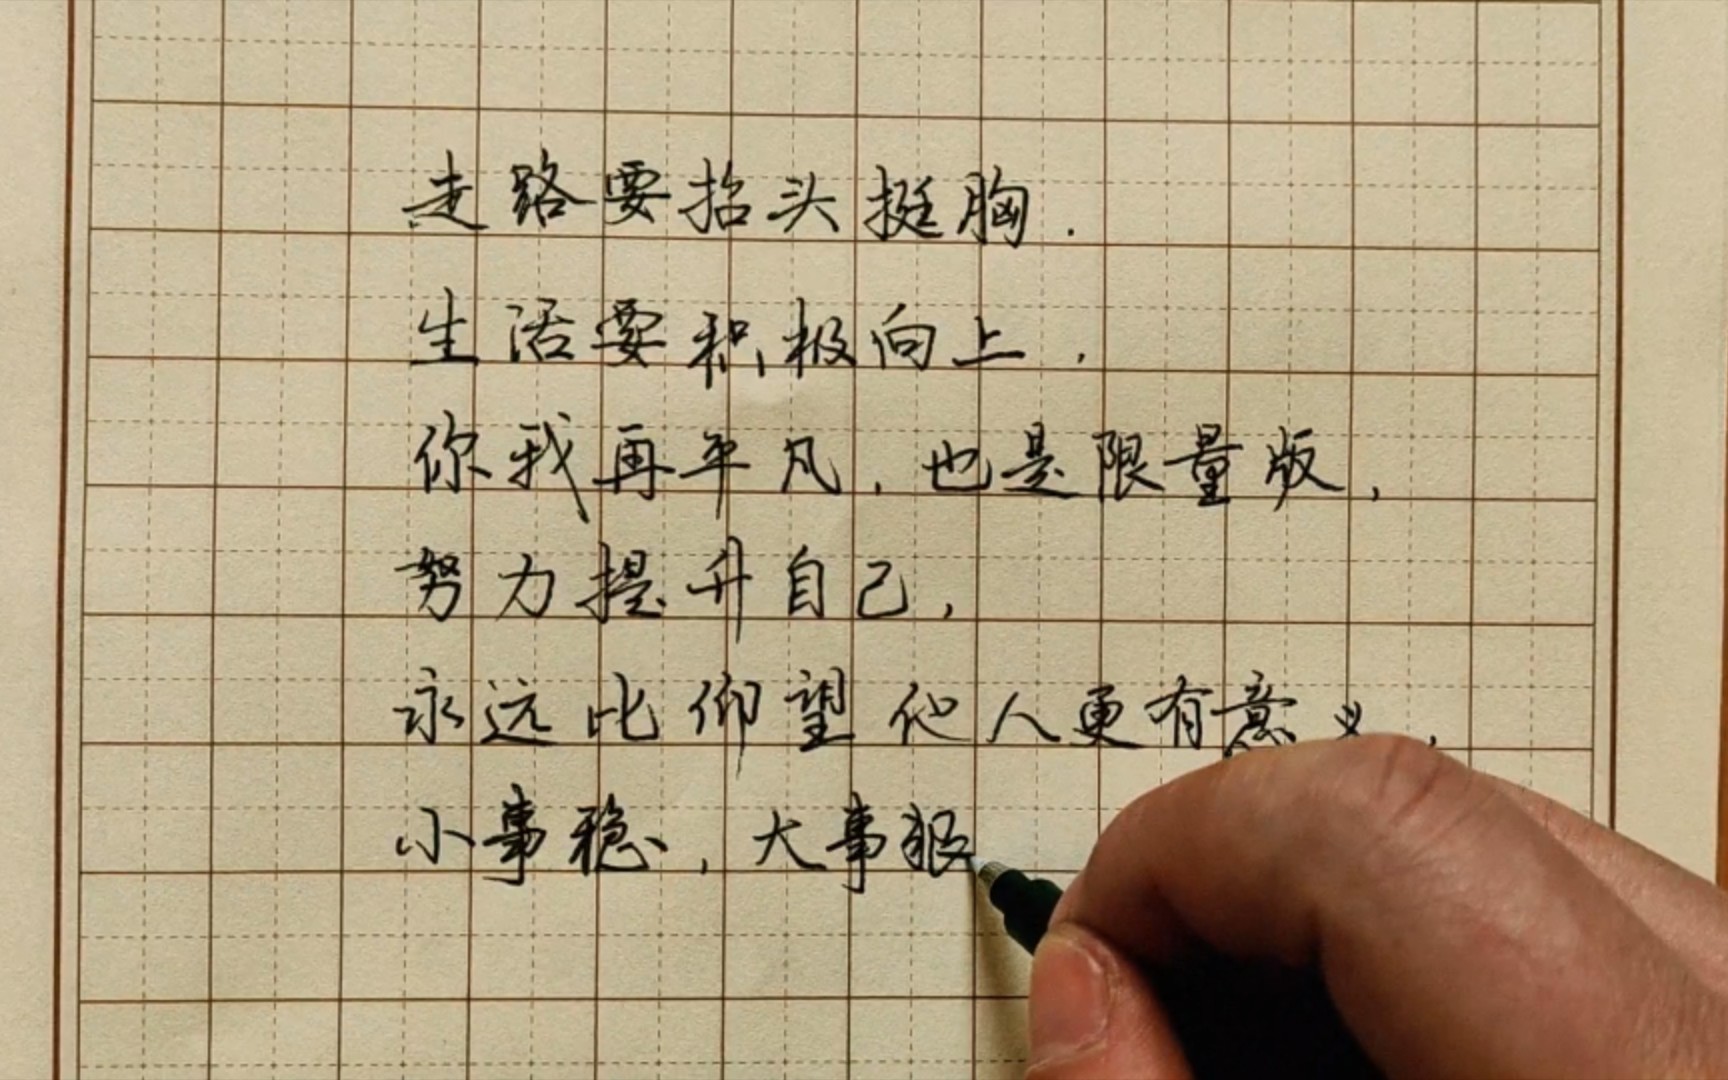 走路要抬头挺胸.
生活要积极向上.
你我再平凡,也是限量版,
努力提升自己,
永远比仰望他人更有意义,
小事稳,大事狠